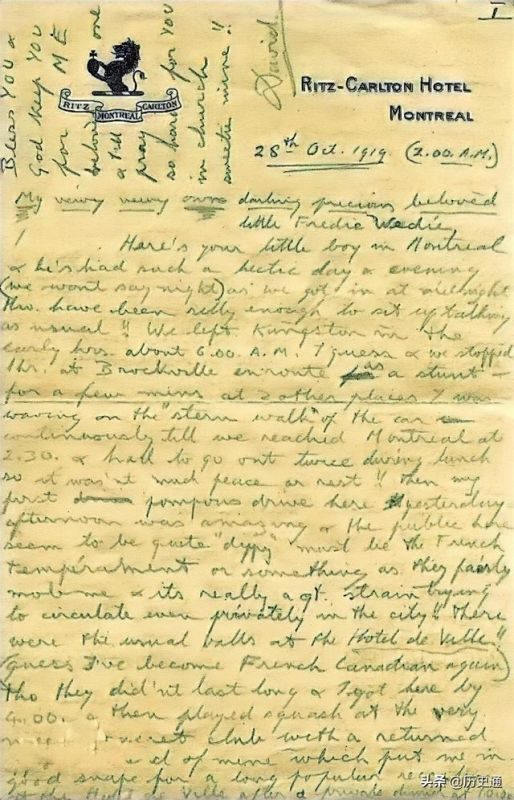 I
Bless YOU &
God keep YOU
for ME
beloved one
& I'll
pray
so hard for YOU
in church
sweetie mine!!
David.
RITZ MONTREAL CARLTON
RITZ-CARLTON HOTEL
MONTREAL
28th Oct. 1919. (2.00. A.M.)
My vewy vewy own darling precious beloved
little Fredie Wedie,
Here's your little boy in Montreal
& he's had such a hectic day & evening
(we won't say night) as we got in at midnight
tho. have been silly enough to sit up talking
as usual!! We left Kingston in the
early hrs. about 6.00. A.M. I guess & we stopped
1hr. at Brockville enroute as a stunt
for a few mins at 2 other places I was
waving on the "stern walk" of the car
continuously till we reached Montreal at
2.30. & had to go out twice during lunch
so it was'nt much peace or rest!! Then my
first pompous drive here yesterday
afternoon was amazing & the public here
seem to be quite "dippy" must be the French
temperament or something as they fairly
mob me & its really a gt. strain trying
to circulate even privately in the city!! There
were the usual balls at the Hotel de Ville!!
(guess I've become French Canadian again)
tho they did'nt last long & I got here by
4.00. & then played squash at the very
club with a returned
of mine which put me in
good shape for a long popular
Hotel de Ville after a private dinner at
头条 @历史通